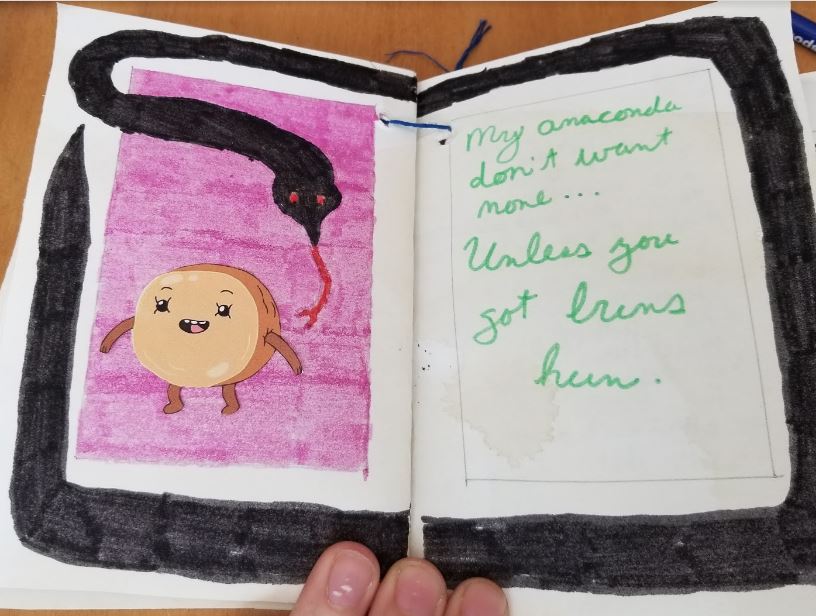 My anaconda
don't want
none...
Unless you
got buns
hun.